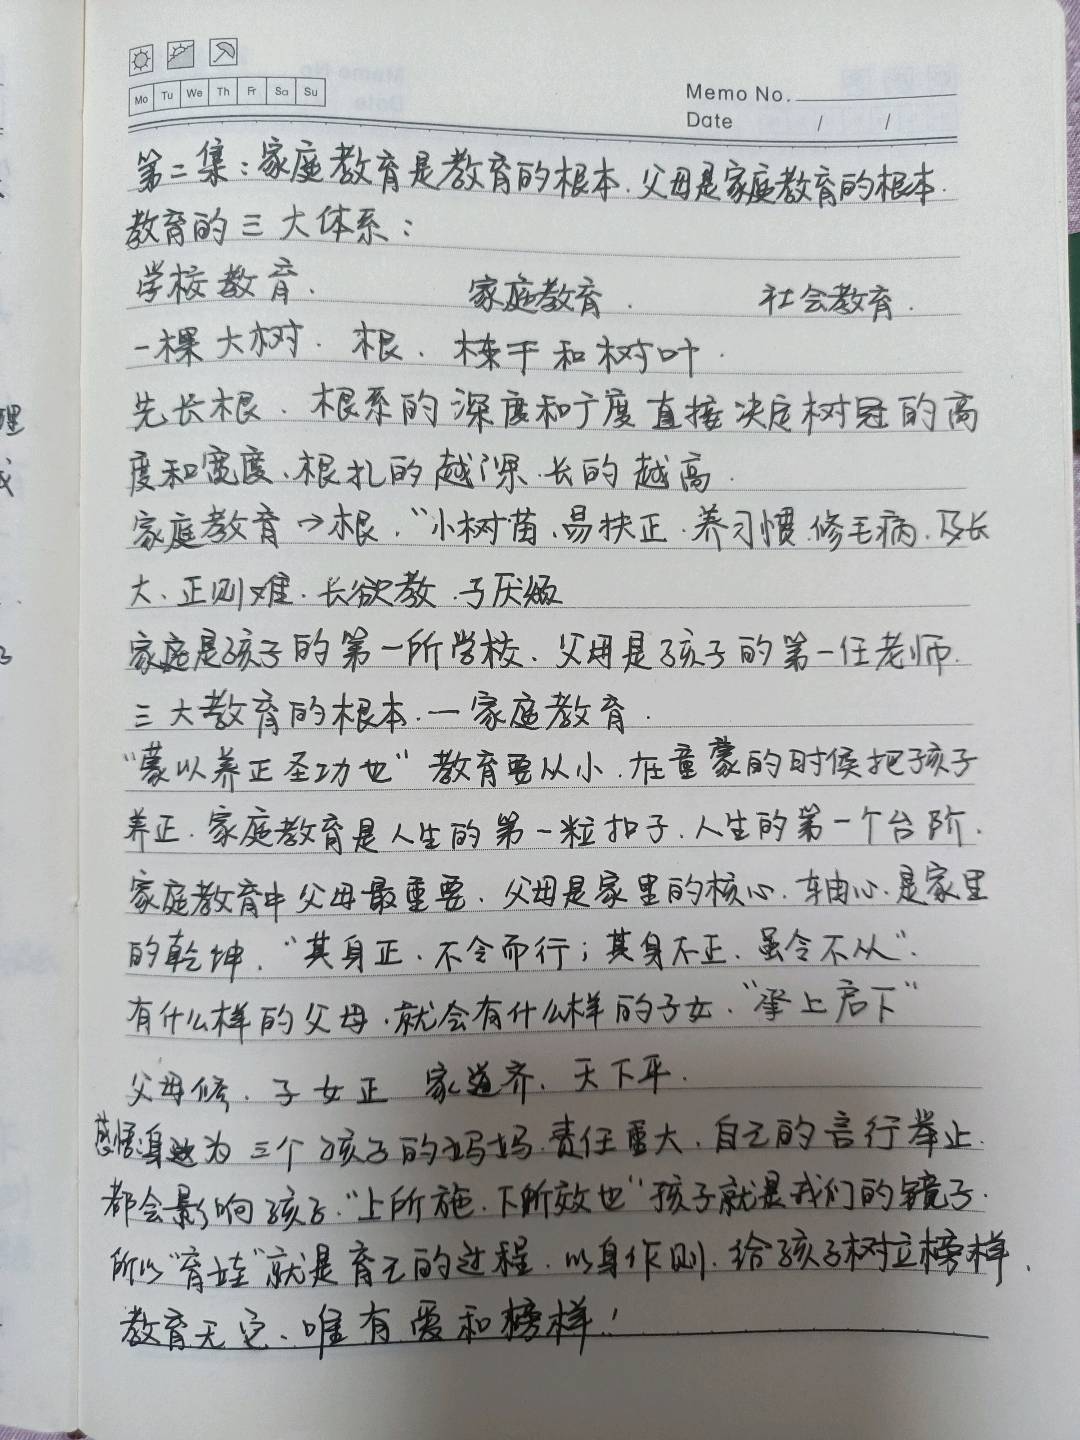 Mo Tu We Th Fr Sa Su
Memo No.
Date / /
第二集:家庭教育是教育的根本.父母是家庭教育的根本.
教育的三大体系:
学校教育. 家庭教育. 社会教育.
一棵大树.根、株干和树叶.
先长根、根系的深度和广度直接决定树冠的高
度和宽度、根扎的越深.长的越高.
家庭教育→根,“小树苗、易扶正.养习惯.修毛病.及长
大、正则难.长欲教.子厌烦
家庭是孩子的第一所学校、父母是孩子的第一任老师.
三大教育的根本.一家庭教育.
“蒙以养正圣功也”教育要从小.在童蒙的时侯把孩子
养正.家庭教育是人生的第一粒扣子.人生的第一个台阶.
家庭教育中父母最重要、父母是家里的核心.轴心.是家里
的乾坤.“其身正、不令而行;其身不正.虽令不从”.
有什么样的父母.就会有什么样的子女.“承上启下”
父母修.子女正 家道齐.天下平.
感悟:身为三个孩子的妈妈.责任重大.自己的言行举止.
都会影响孩子.“上所施.下所效也”孩子就是我们的镜子.
所以“育娃”就是育己的过程.以身作则.给孩子树立榜样.
教育无它、唯有爱和榜样!